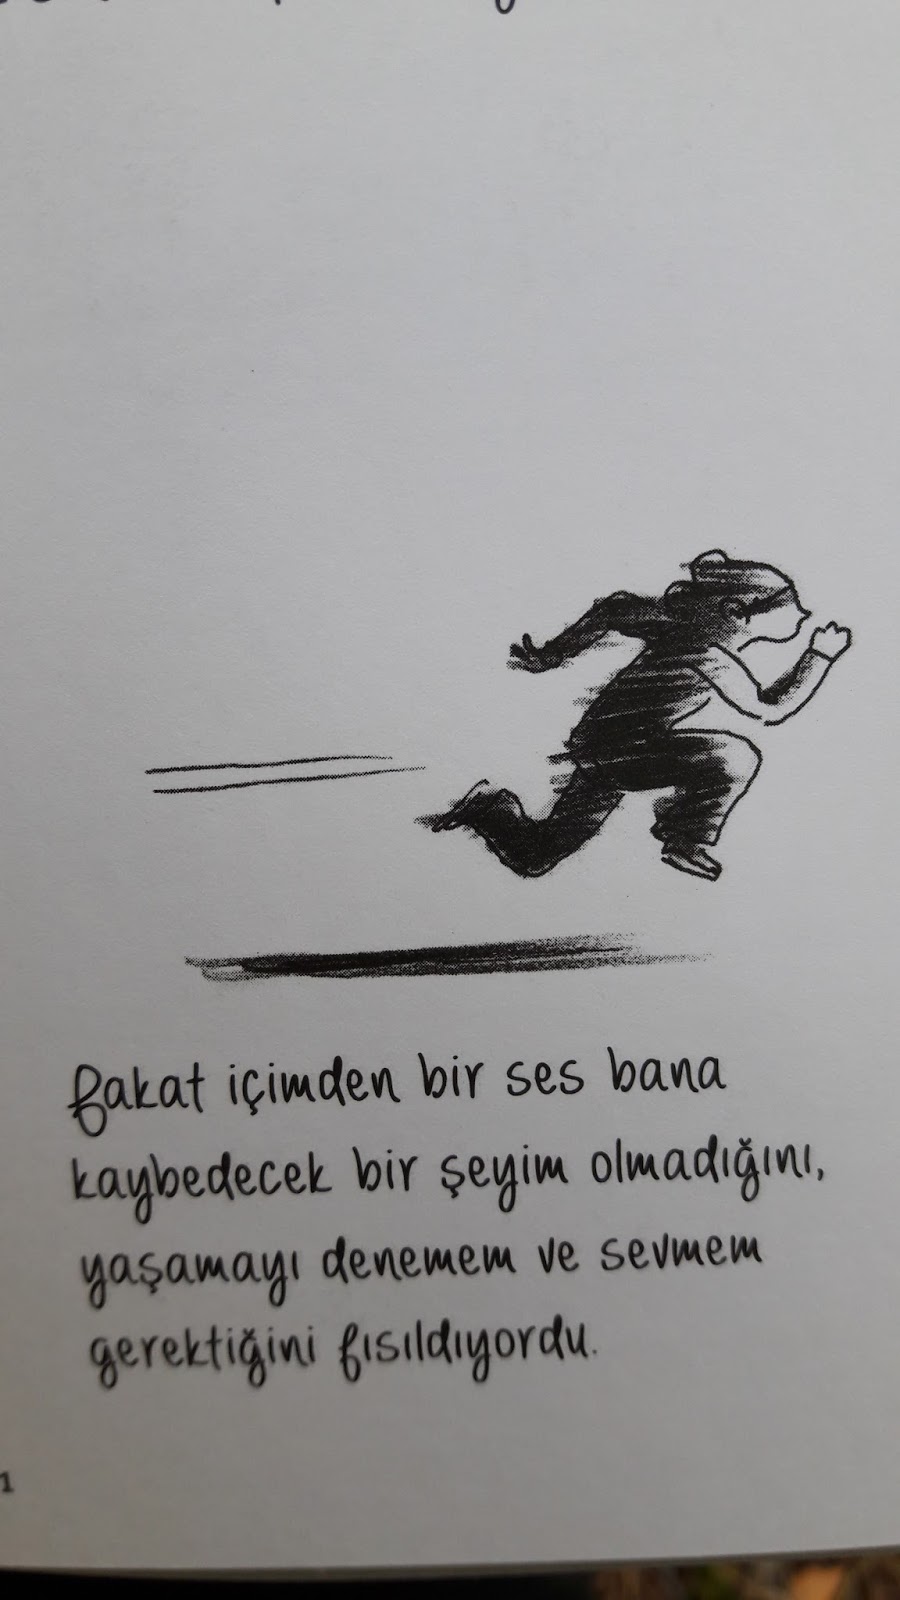 fakat içimden bir ses bana
kaybedecek bir şeyim olmadığını,
yaşamayı denemem ve sevmem
gerektiğini fısıldıyordu.
1